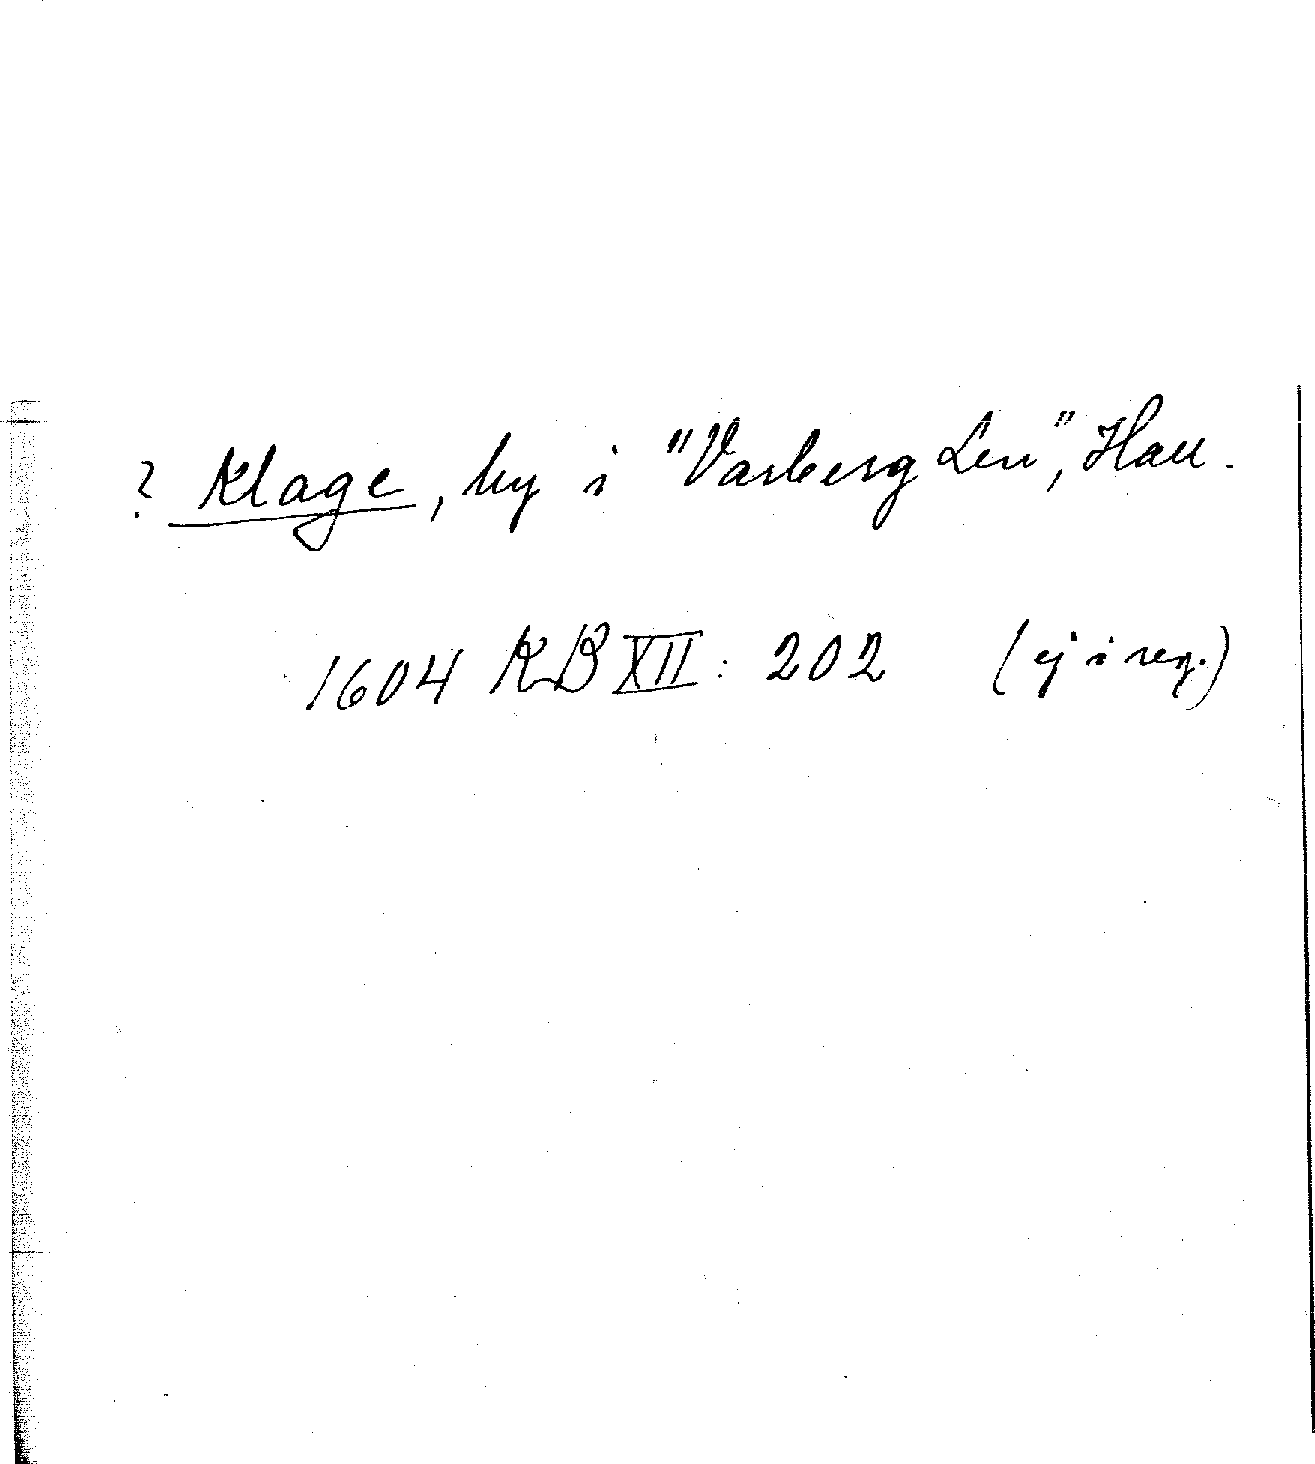 ? Klage, by i "Varberg Len", Hall.
1604 KB XII: 202 (ej i reg.)